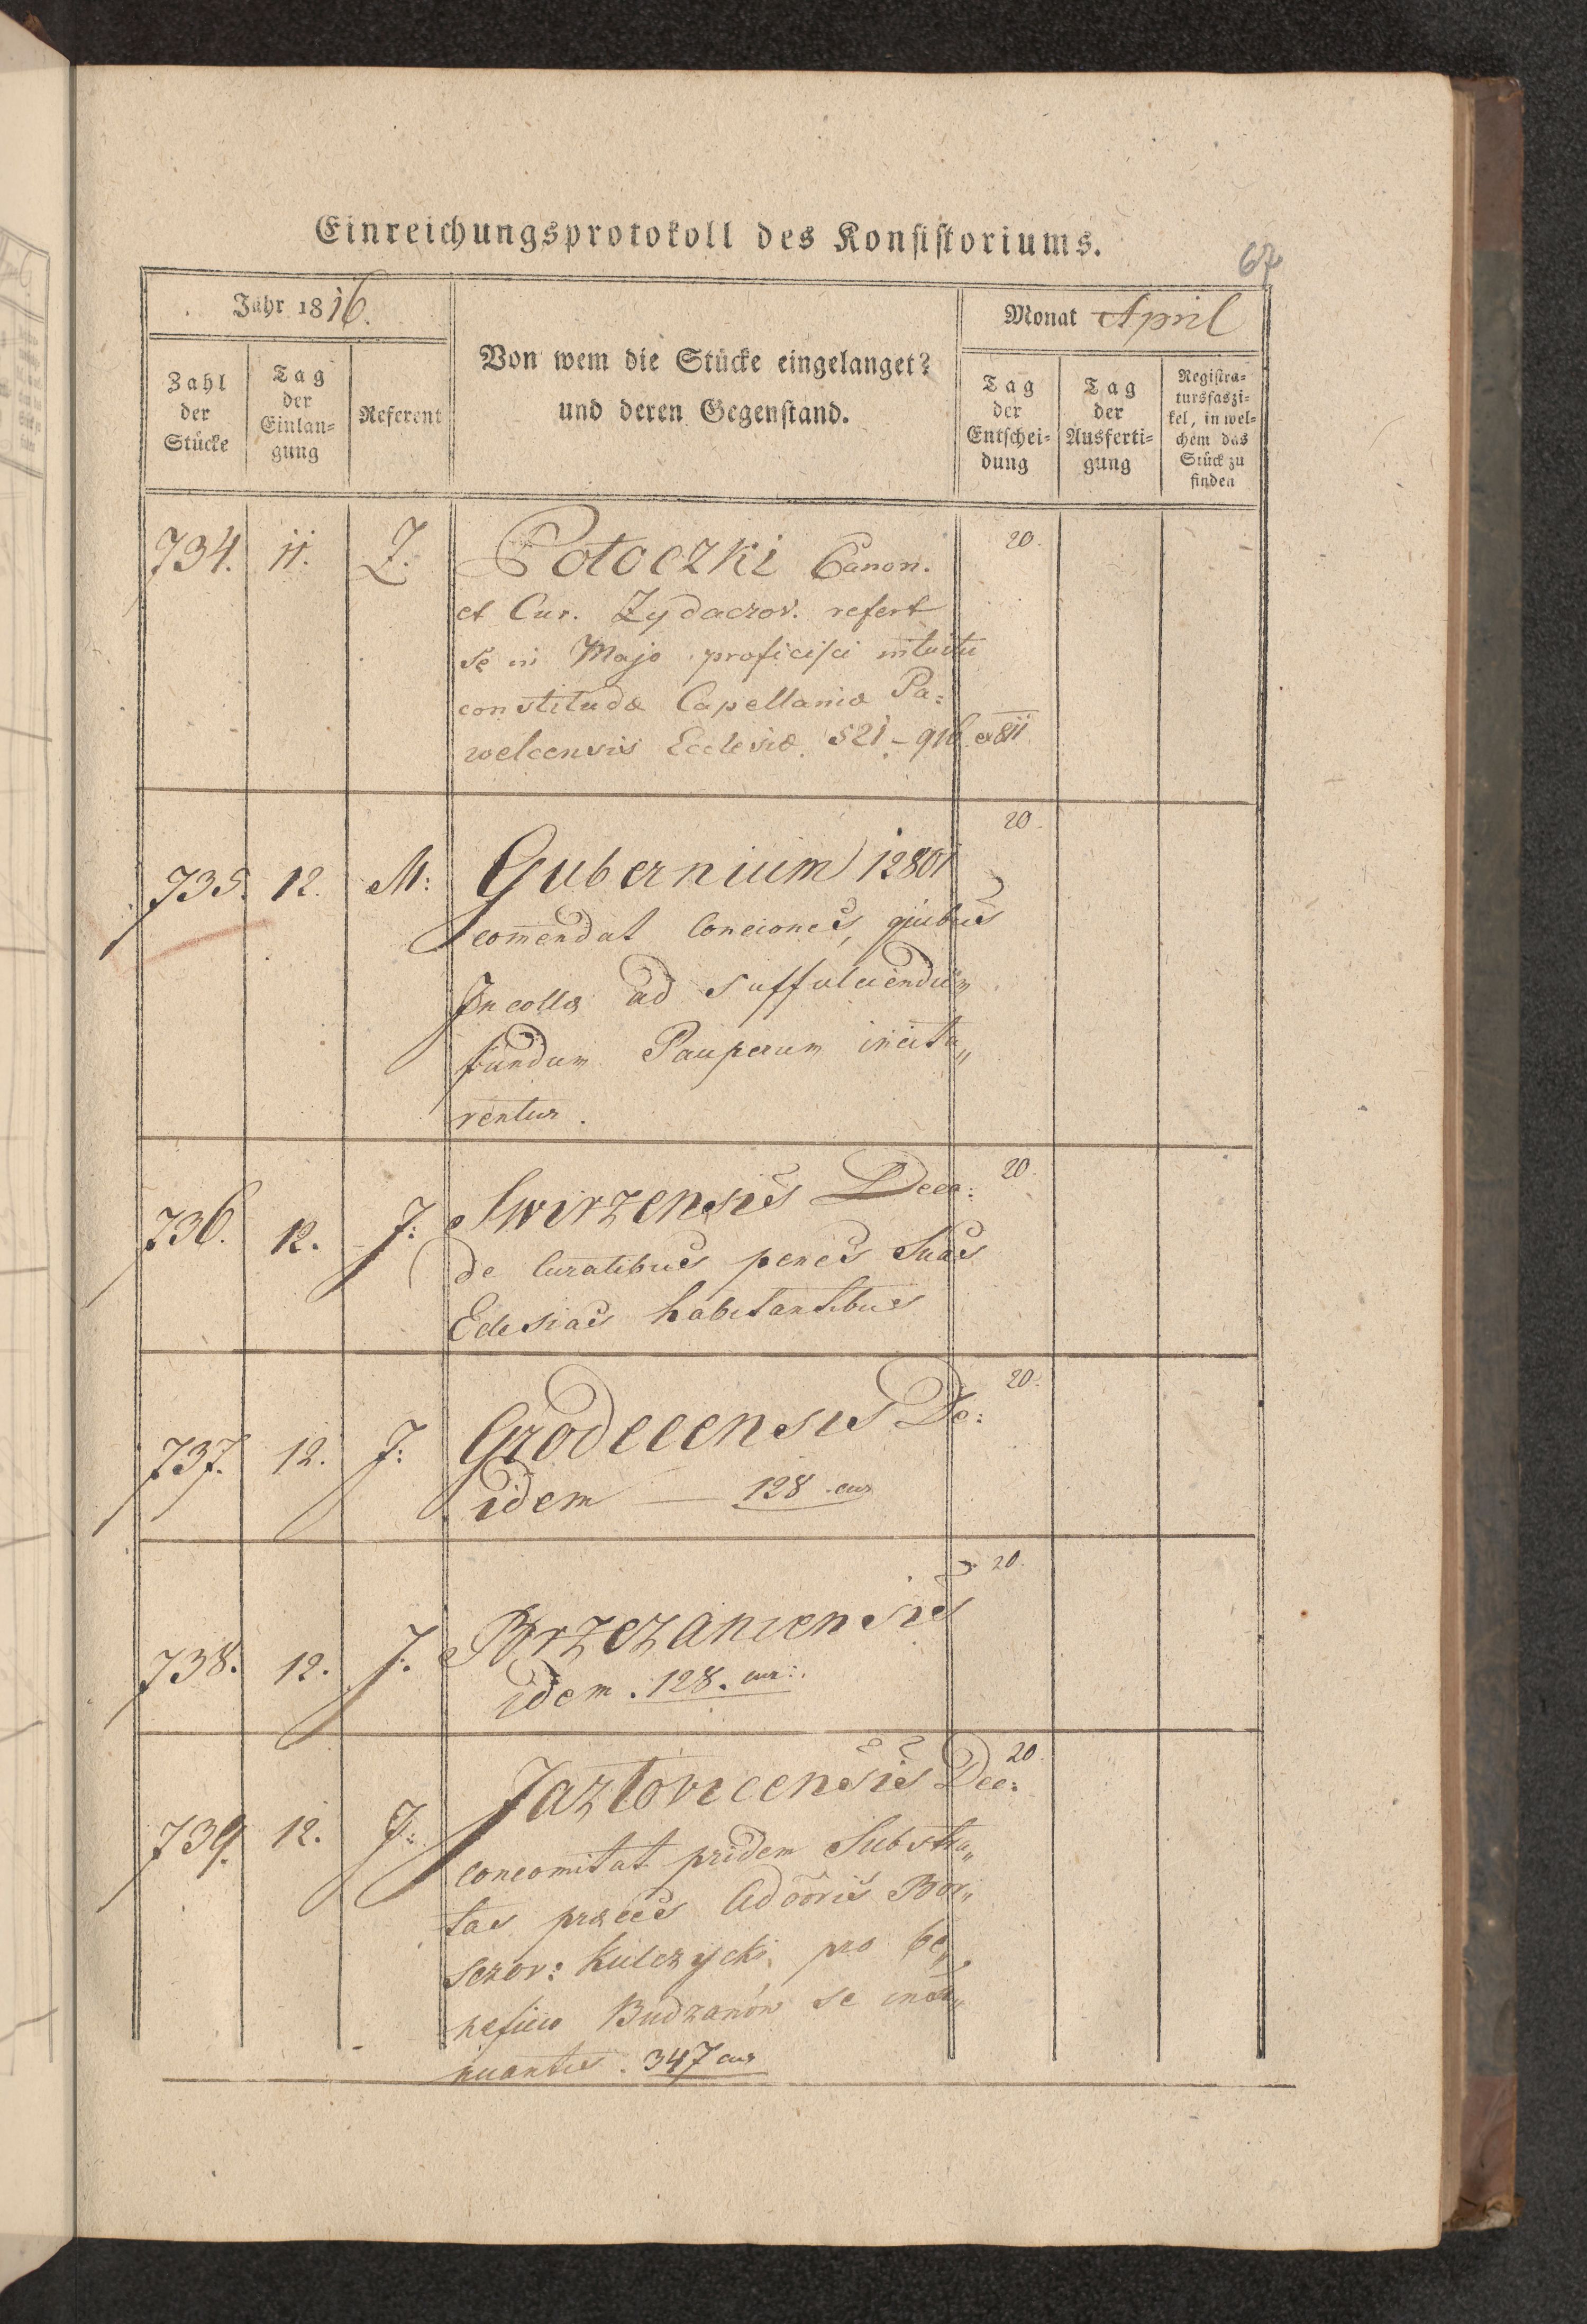 Einreichungsprotokoll des Konsistoriums.
67
Jahr 1816.
Monat April
Zahl der Stücke
Tag der Einlangung
Referent
Von wem die Stücke eingelanget?
und deren Gegenstand.
Tag der Entscheidung
Tag der Ausfertigung
Registratursfaszikel, in welchem das Stück zu finden
734. 11. Z. Potoczki Canon. 20.
et Cur. Zydaczov. refert
se in Majo proficisci intuitu
constitudæ Capellaniæ Pa=
welcensis Ecclesiæ. 521.–
735. 12. M: Gubernium 12801 20.
com̄endat Conciones, quibus
Incollæ ad suffulciendum
fundum Pauperum incita„
rentur.
736. 12. J: Swirzensis Dec: 20.
de Curatibus penes Suas
Eclesias habitantibus
737. 12. J: Grodecensis De: 20.
idem — 128 cur
738. 12. J. Brzezaniensis 20.
idem. 128. cur:
739. 12. J: Jazlovicensis Dec: 20.
concomitat pridem Substra„
tas præces Adōōris Bor„
sczov: Kulczycki, pro be„
neficio Budzanów se insi„
nuantis. 347 cur